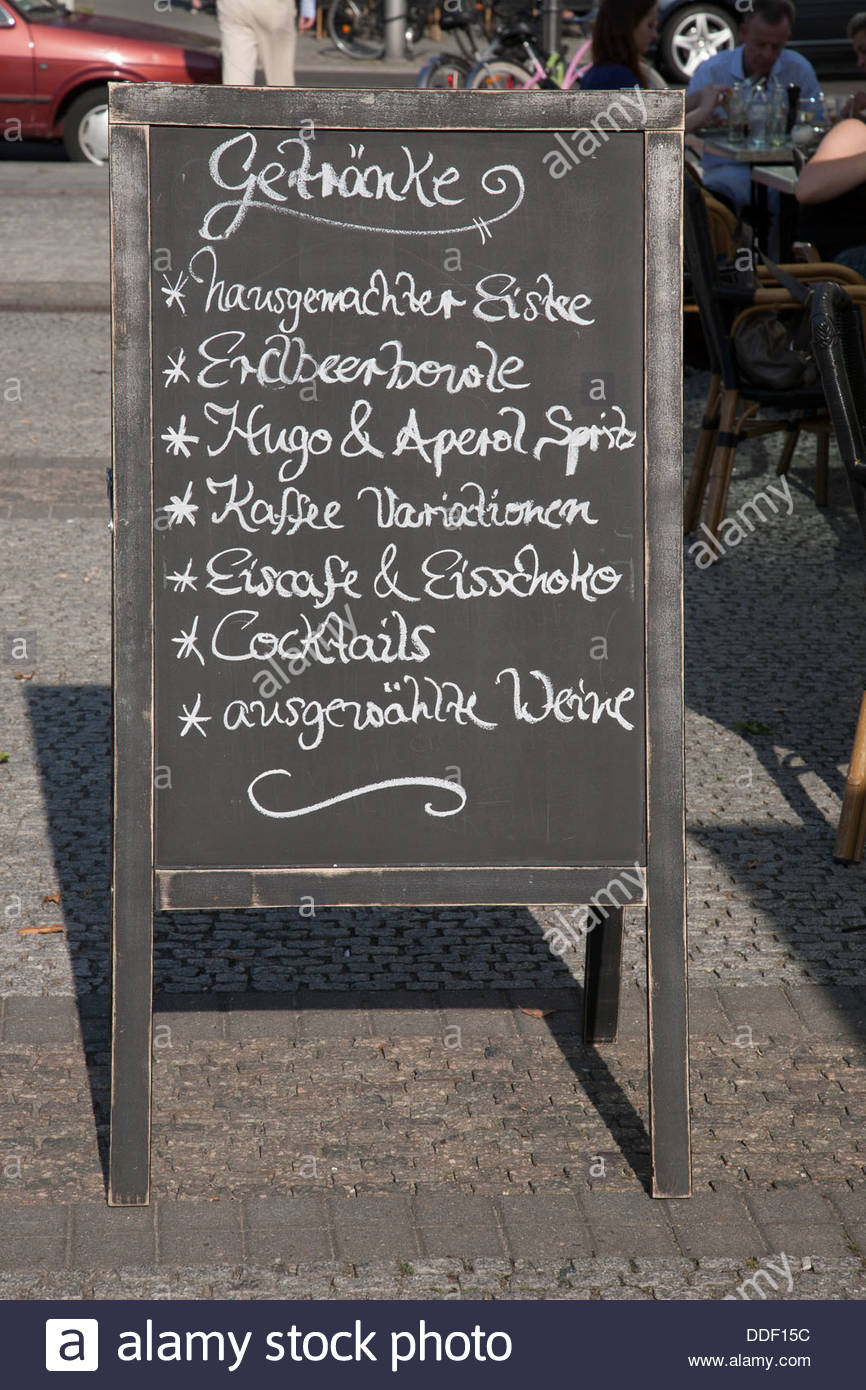 Getränke
* hausgemachter Eistee
* Erdbeerbowle
* Hugo & Aperol Spritz
* Kaffee Variationen
* Eiscafe & Eisschoko
* Cocktails
* ausgewählte Weine
alamy
alamy
alamy
alamy
alamy
a alamy stock photo
DDF15C
www.alamy.com